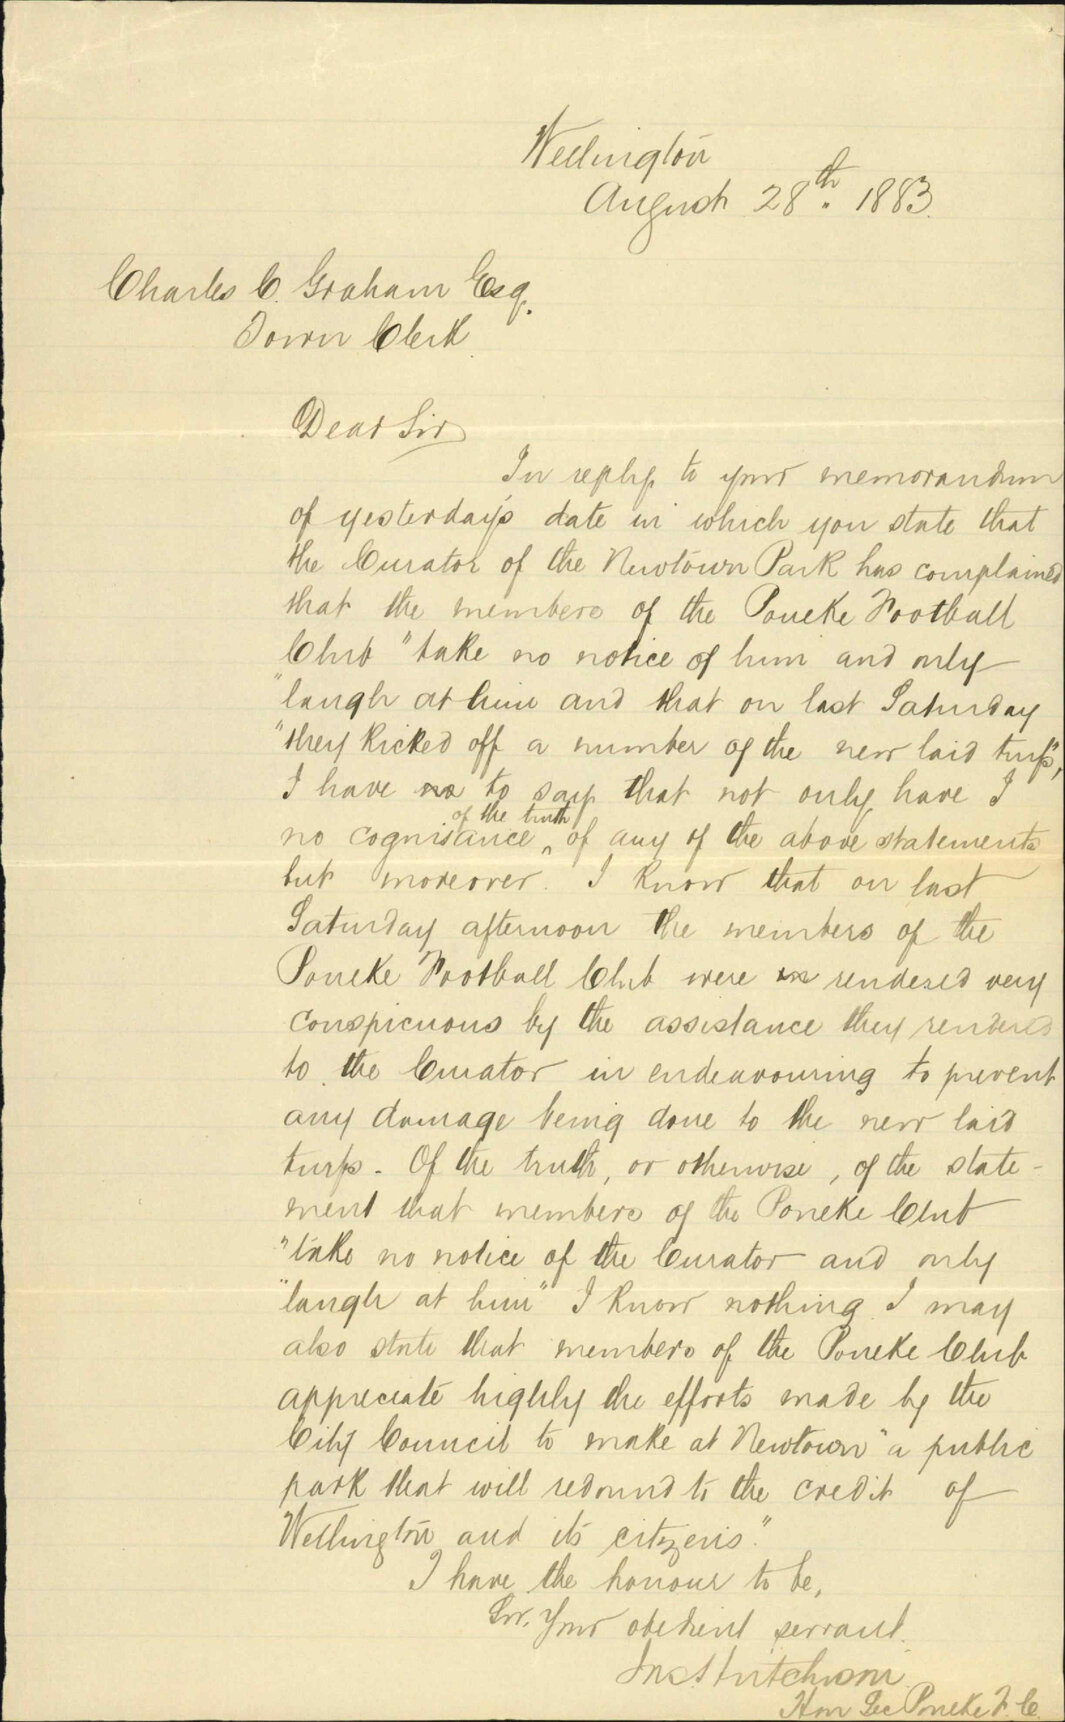 Wellington
August 28th. 1883.
Charles C. Graham Esq.
Town Clerk
Dear Sir
In reply to your memorandum
of yesterday's date in which you state that
the Curator of the Newtown Park has complained
that the members of the Poneke Football
Club "take no notice of him and only
"laugh at him and that on last Saturday
"they kicked off a number of the new laid turfs",
I have no to say that not only have I
of the truth
no cognisance of any of the above statements
but moreover. I know that on last
Saturday afternoon the members of the
Poneke Football Club were rendered very
conspicuous by the assistance they rendered
to the Curator in endeavouring to prevent
any damage being done to the new laid
turfs. Of the truth, or otherwise, of the state-
ment that members of the Poneke Club
"take no notice of the Curator and only
"laugh at him" I know nothing I may
also state that members of the Poneke Club
appreciate highly the efforts made by the
City Council to make at Newtown "a public
park that will redound to the credit of
Wellington and its citizens."
I have the honour to be,
Sir, Your obedient servant.
Jno. S. Hutchison
Hon Sec Poneke F. C.